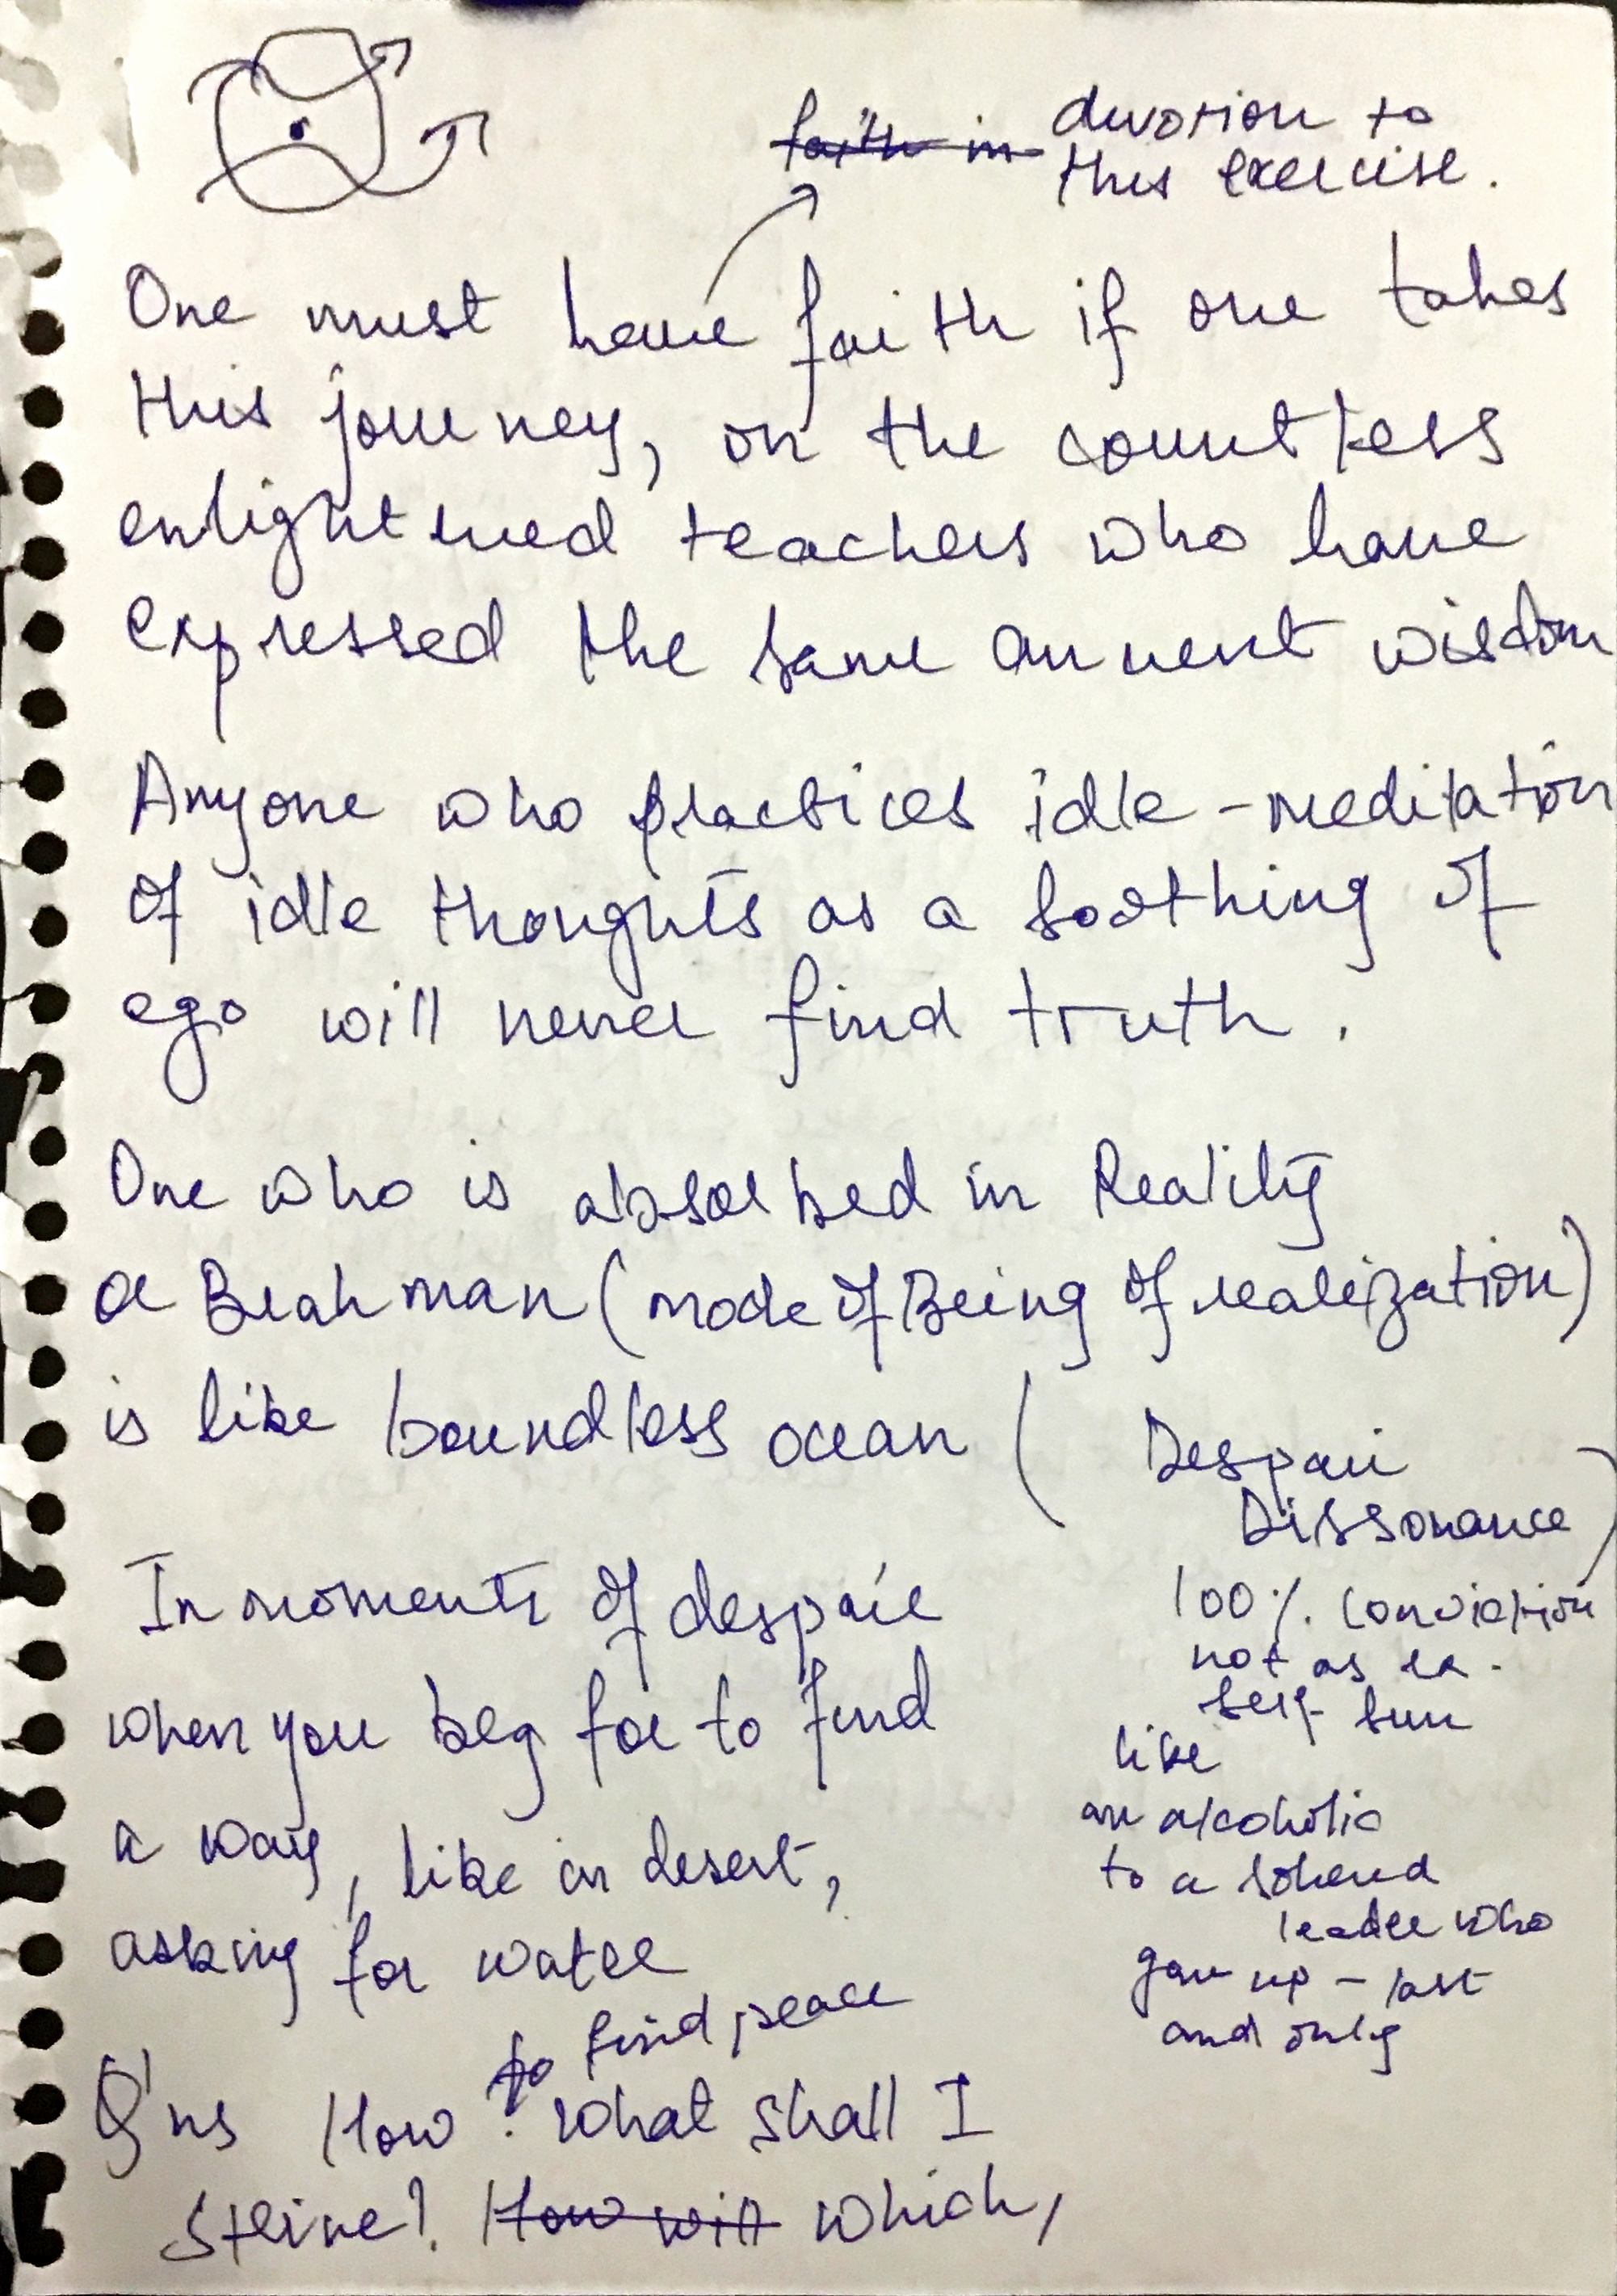 ~~faith in~~ devotion to
this exercise.
One must have faith if one takes
this journey, on the countless
enlightened teachers who have
expressed the same ancient wisdom
Anyone who practices idle-meditation
of idle thoughts as a soothing of
ego will never find truth.
One who is absorbed in Reality
or Brahman (mode of Being of realization)
is like boundless ocean (Despair
Dissonance)
In moments of despair
when you beg for to find
a way, like in desert,
asking for water
100% conviction
not as
self
like
an alcoholic
to a
leader who
gave up - last
and only
to find peace
Q'ns How? What shall I
strive? ~~How will~~ which,